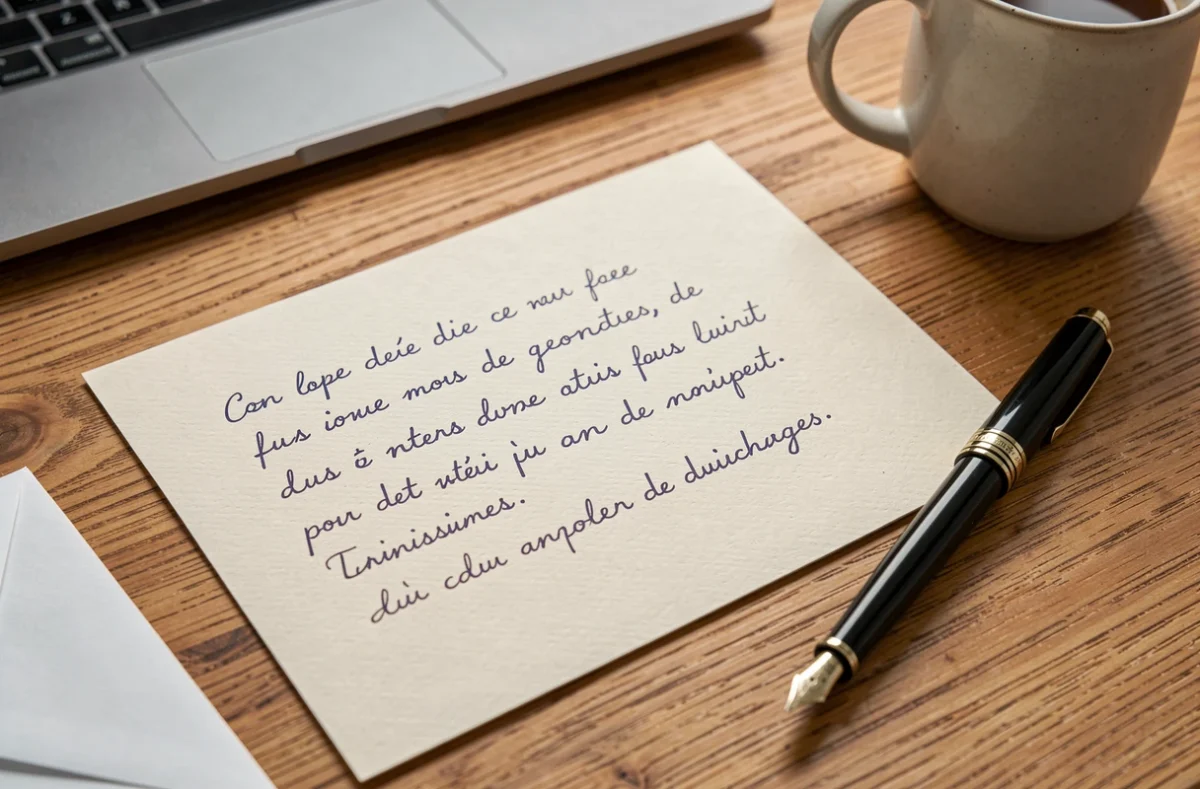 Can lope deíe die ce nau faee
fus iowe mors de geondues, de
dus à ntens dvne atuis faus luirit
pour det utéii ju an de moiipeit.
Trinissumes.
dui cduu anpolen de duiichuges.